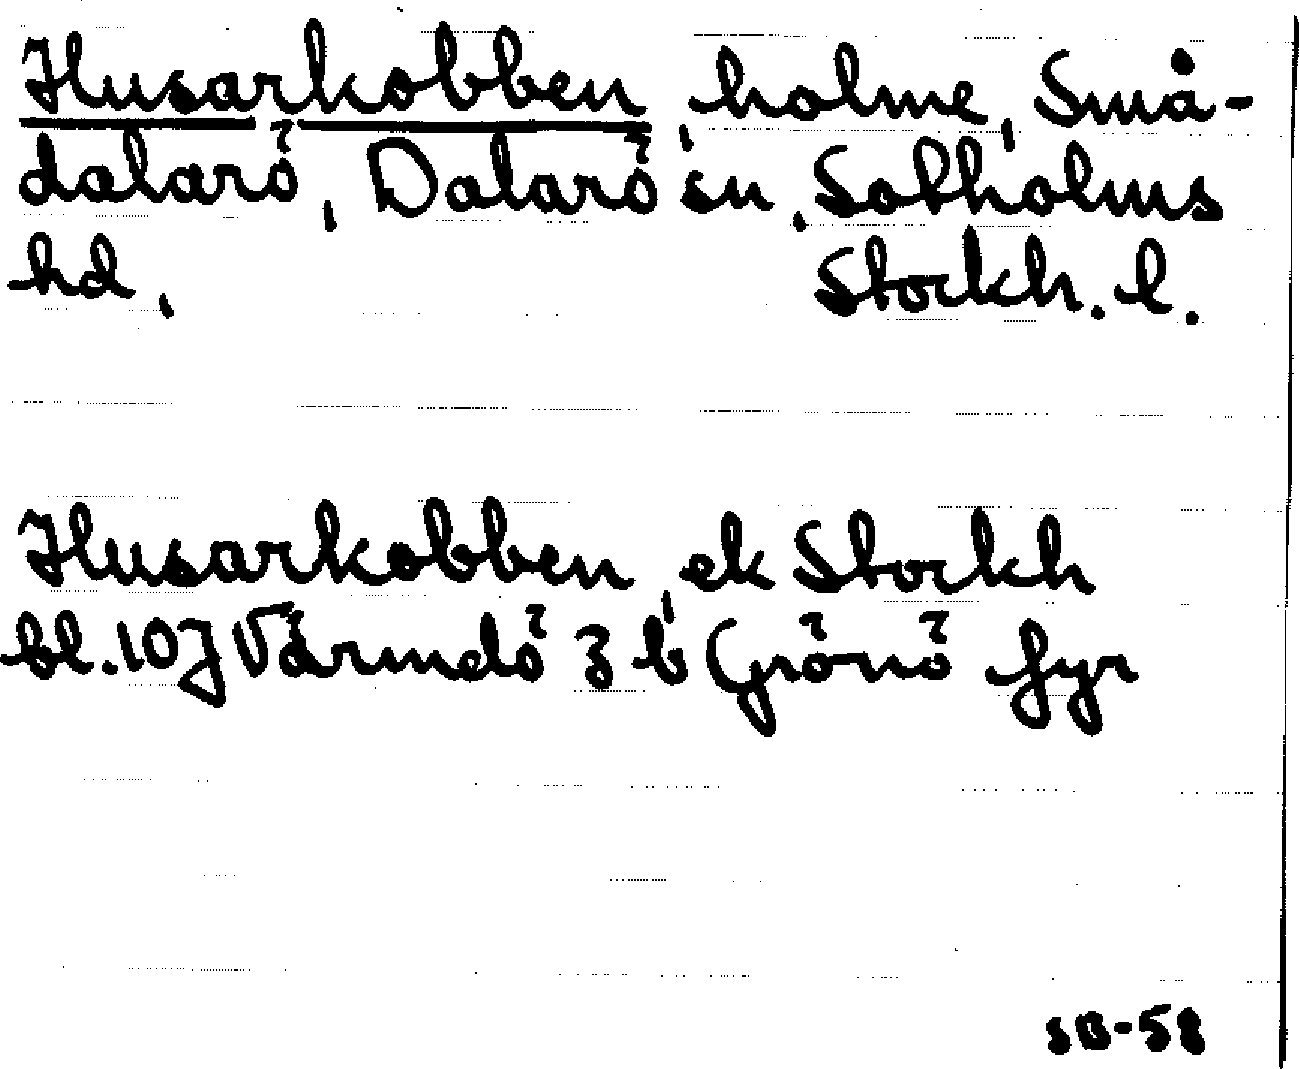 Husarkobben, holme, Små-
dalarö, Dalarö sn, Sotholms
hd, Stockh. l.
Husarkobben, ek Stockh
bl. 10J Värmdö 3 b Grönö fyr
SB-58